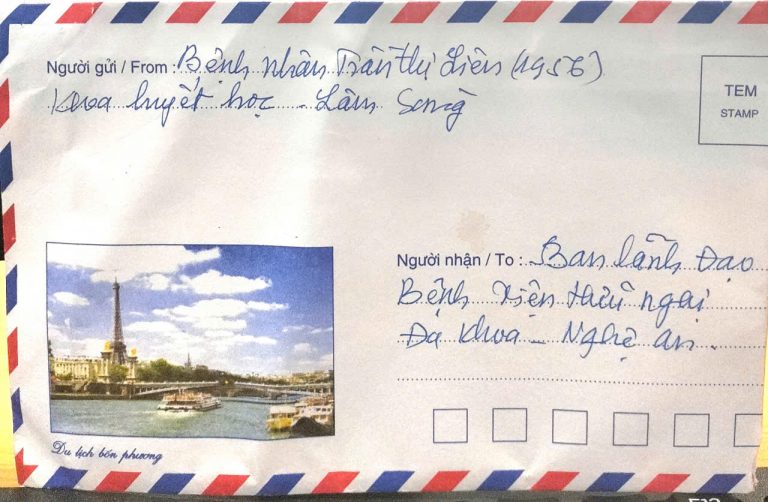 Người gửi / From : Bệnh nhân Trần Thị Liên (1956)
Khoa huyết học - Lâm Sàng
TEM
STAMP
Người nhận / To : Ban lãnh Đạo
Bệnh Viện Hữu nghị
Đa Khoa - Nghệ an.
Du lịch bốn phương